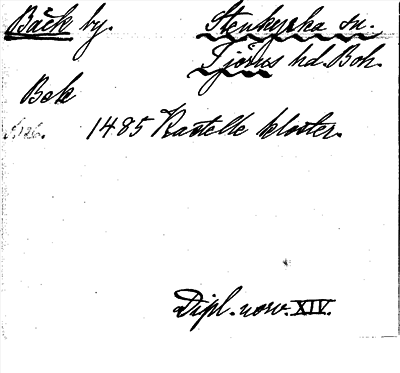 Bäck by. Stenkyrka sn.
Tjörns hd. Boh.
Bek
1485 Kastelle kloster.
Dipl. norv. XIV.